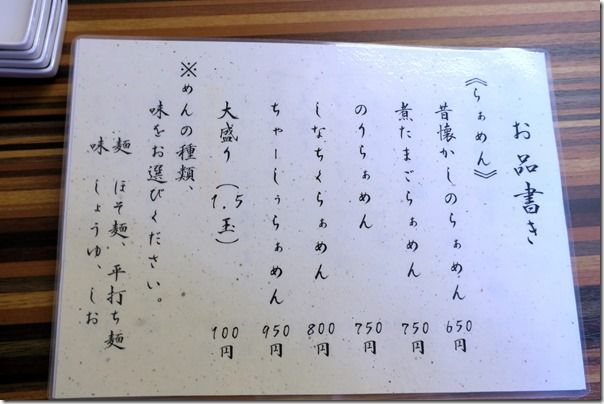 お品書き
《らぁめん》
昔懐かしのらぁめん 650円
煮たまごらぁめん 750円
のりらぁめん 750円
しなちくらぁめん 800円
ちゃーしぅらぁめん 950円
大盛り（1.5玉） 100円
※めんの種類、
味をお選びください。
麺 ほそ麺、平打ち麺
味 しょうゆ、しお